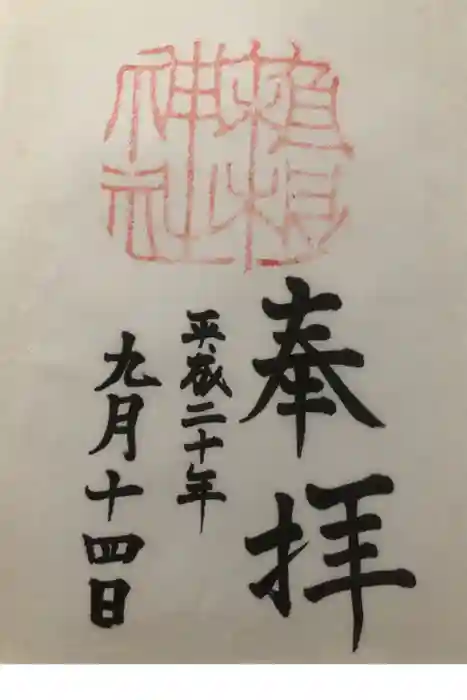 植槻
神社
奉拝
平成二十年
九月十四日